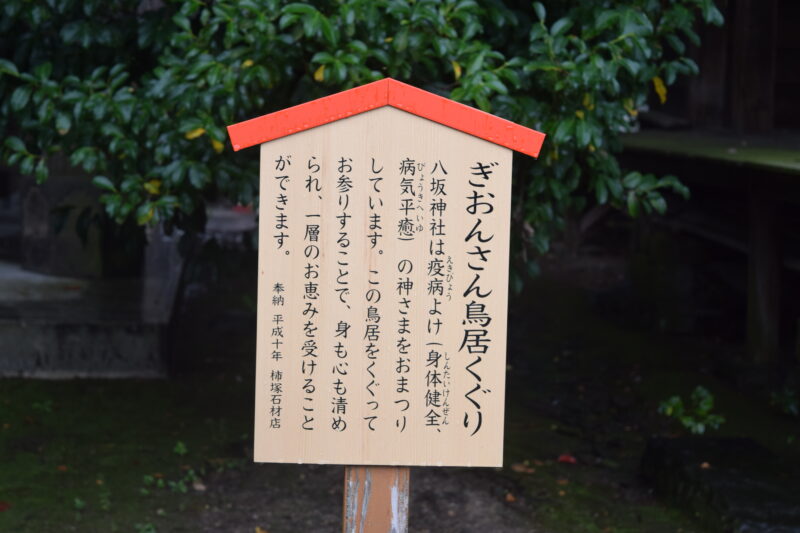 ぎおんさん鳥居くぐり
八坂神社は疫病よけ（身体健全、
えきびょう
しんたいけんぜん
病気平癒）の神さまをおまつり
びょうきへいゆ
しています。この鳥居をくぐって
お参りすることで、身も心も清め
られ、一層のお恵みを受けること
ができます。
奉納 平成十年 柿塚石材店